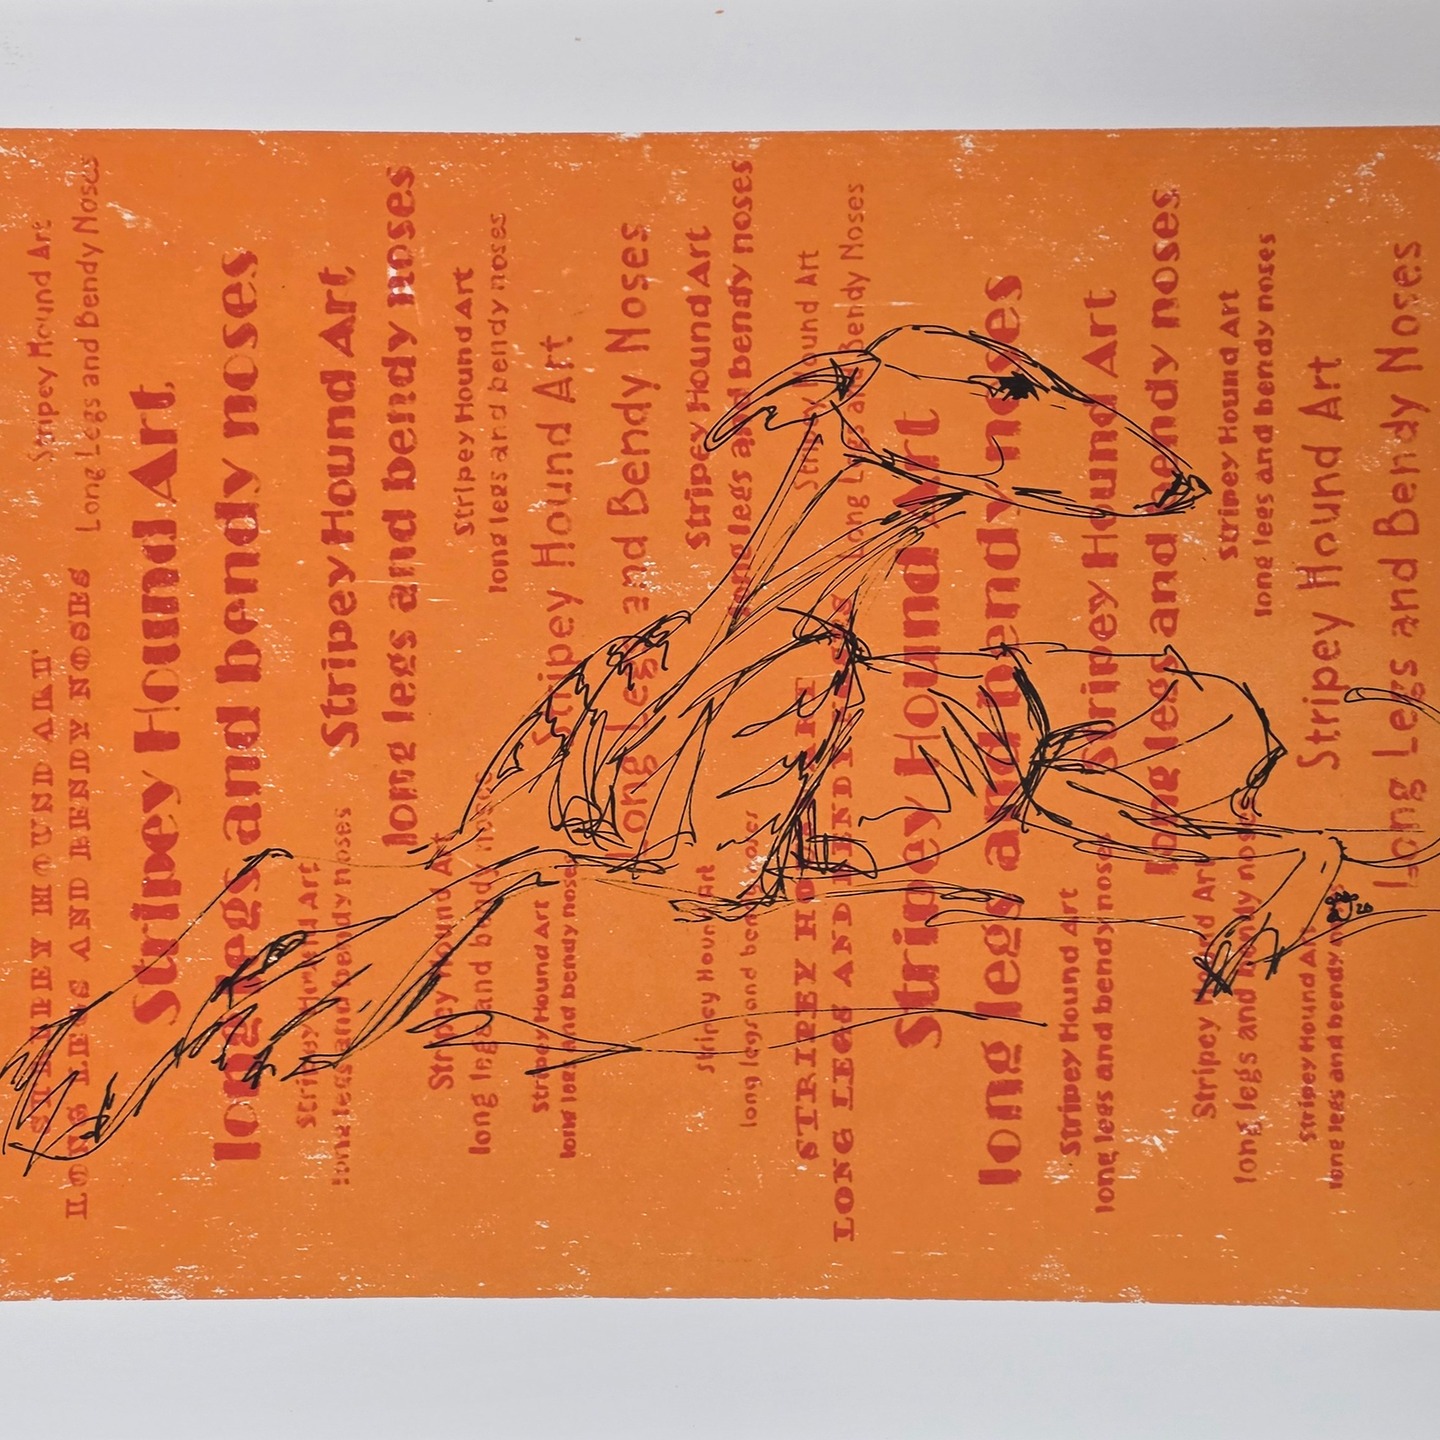 Stripey Hound Art
Long Legs and Bendy Noses
STRIPEY HOUND ART
LONG LEGS AND BENDY NOSES
Stripey Hound Art
long legs and bendy noses
Stripey Hound Art
long legs and bendy noses
Stripey Hound Art
long legs and bendy noses
Stripey Hound Art
long legs and bendy noses
Stripey Hound Art
long legs and bendy noses
Stripey Hound Art
Long Legs and Bendy Noses
Stripey Hound Art
long legs and bendy noses
Stripey Hound Art
long legs and bendy noses
Stripey Hound Art
long legs and bendy noses
Stripey Hound Art
Long Legs and Bendy Noses
STRIPEY HOUND ART
LONG LEGS AND BENDY NOSES
Stripey Hound Art
long legs and bendy noses
Stripey Hound Art
long legs and bendy noses
Stripey Hound Art
long legs and bendy noses
Stripey Hound Art
long legs and bendy noses
Stripey Hound Art
long legs and bendy noses
Stripey Hound Art
Long Legs and Bendy Noses
Stripey Hound Art
long legs and bendy noses